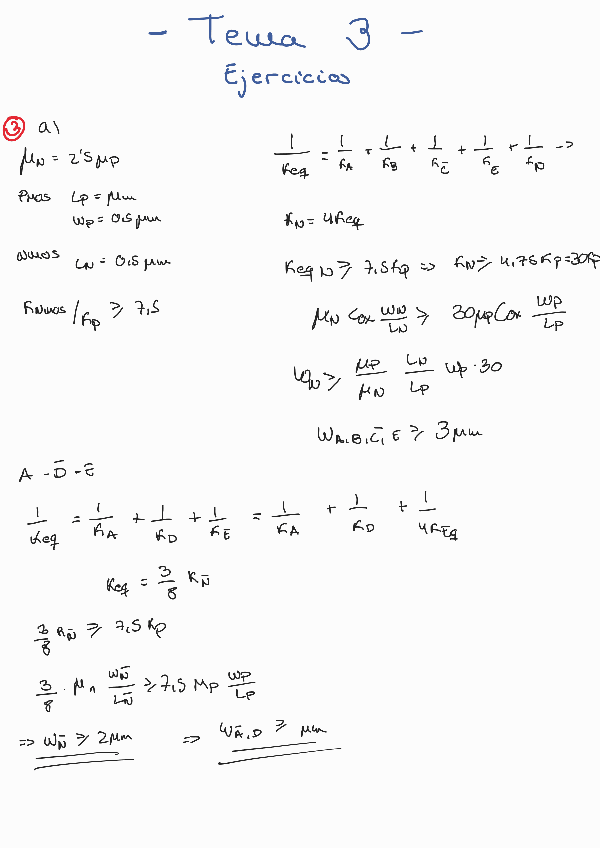 - Tema 3 -
Ejercicios
③ a)
μN = 2'5 μp
PMOS Lp = μm
Wp = 0,5 μm
NMOS LN = 0,5 μm
KNMOS / Kp ≥ 7,5
1/Keq = 1/KA + 1/KB + 1/KC̄ + 1/KE + 1/KN =>
KN = 4Keq
Keq N ≥ 7,5 Kp => KN ≥ 4·7,5 Kp = 30Kp
μN Cox WN/LN ≥ 30μp Cox Wp/Lp
WN ≥ μp/μN LN/Lp Wp · 30
WA,B,C̄,E ≥ 3 μm
A - D̄ - Ē
1/Keq = 1/KA + 1/KD + 1/KĒ = 1/KA + 1/KD + 1/4KEq
Keq = 3/8 KN̄
3/8 KN̄ ≥ 7,5 Kp
3/8 · μn WN̄/LN̄ ≥ 7,5 Mp Wp/Lp
=> WN̄ ≥ 2μm => WĀ,D ≥ μm